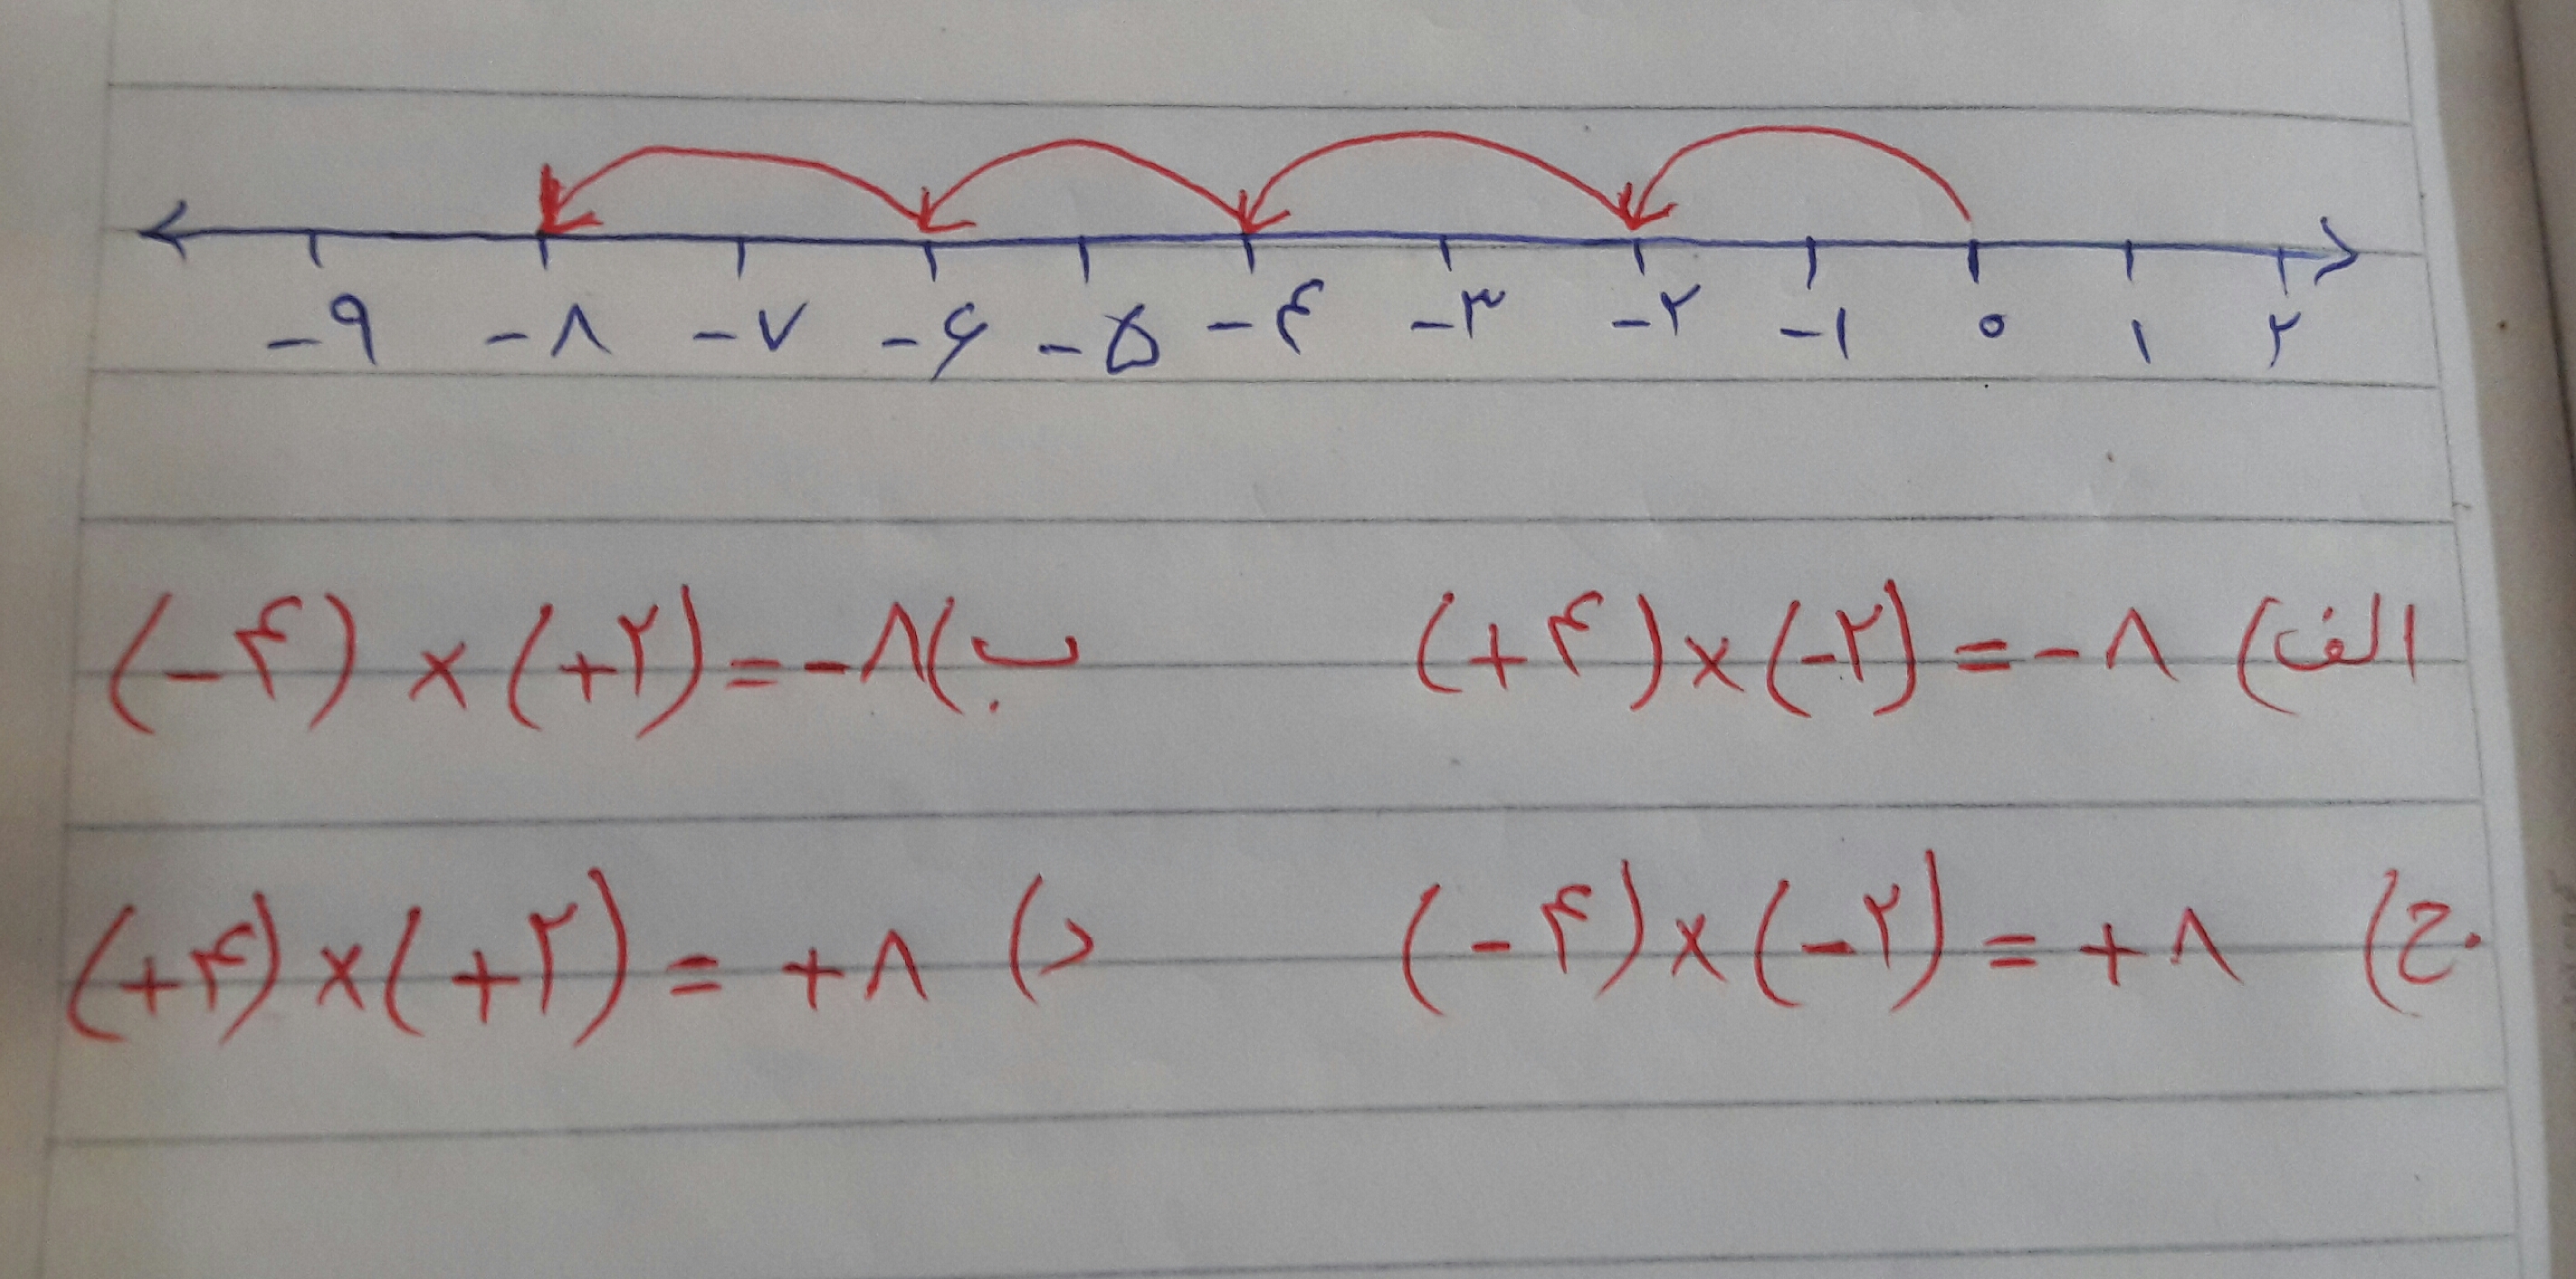 -۹ -۸ -۷ -۶ -۵ -۴ -۳ -۲ -۱ ۰ ۱ ۲
الف) (+۴)×(-۲)=-۸
ب) (-۴)×(+۲)=-۸
ج) (-۴)×(-۲)=+۸
د) (+۴)×(+۲)=+۸